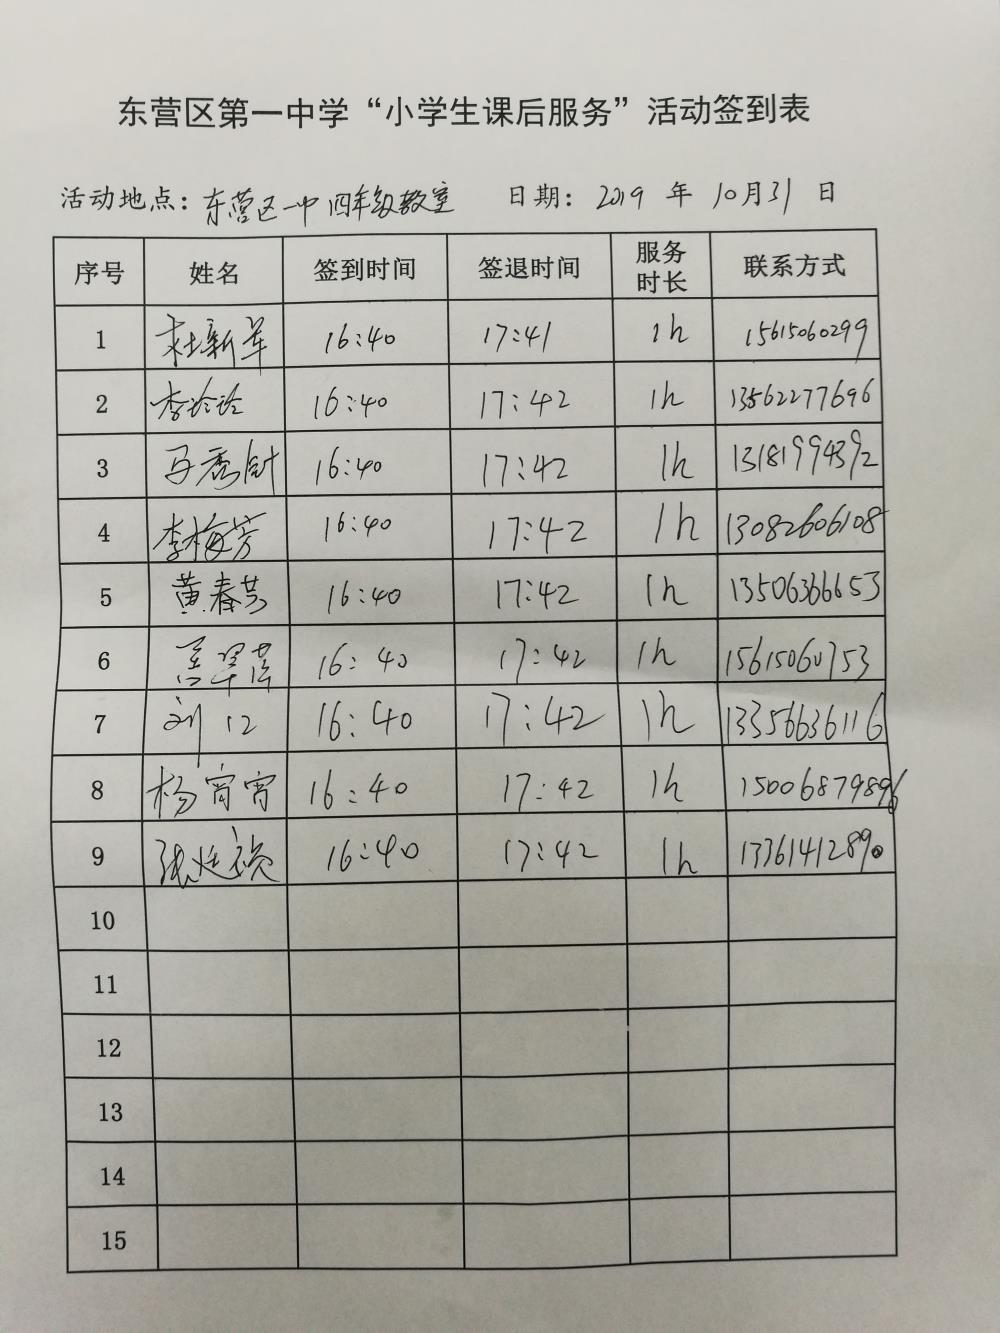 东营区第一中学“小学生课后服务”活动签到表
活动地点：东营区一中四年级教室 日期：2019 年 10月31 日
序号 姓名 签到时间 签退时间 服务时长 联系方式
1 杜新军 16:40 17:41 1h 15615060299
2 李玲玲 16:40 17:42 1h 13562277696
3 马秀针 16:40 17:42 1h 13181994392
4 李梅芳 16:40 17:42 1h 13082606108
5 黄春芳 16:40 17:42 1h 13506366653
6 16:40 17:42 1h 15615060753
7 刘 16:40 17:42 1h 13356636116
8 杨宵宵 16:40 17:42 1h 15006879896
9 张 16:40 17:42 1h 13361412890
10
11
12
13
14
15